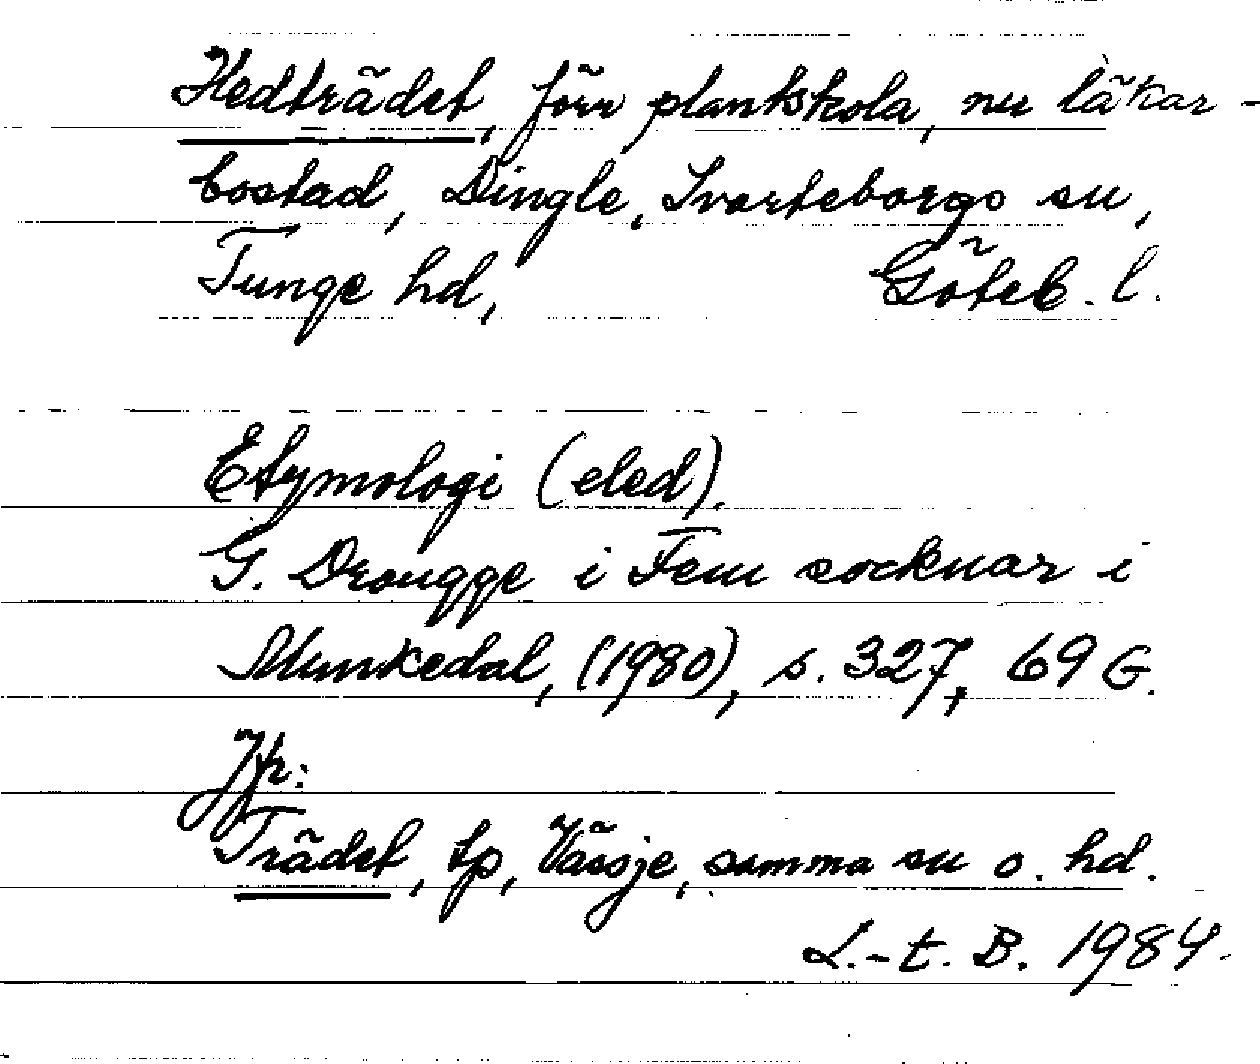 Hedträdet, förr plantskola, nu läkar-
bostad, Dingle, Svarteborgs sn,
Tunge hd, Göteb. l.
Etymologi (eled).
G. Drougge i Fem socknar i
Munkedal, (1980), s. 327, 69 G.
Jfr:
Trädet, tp, Vässje, samma sn o. hd.
L.-t. B. 1984.